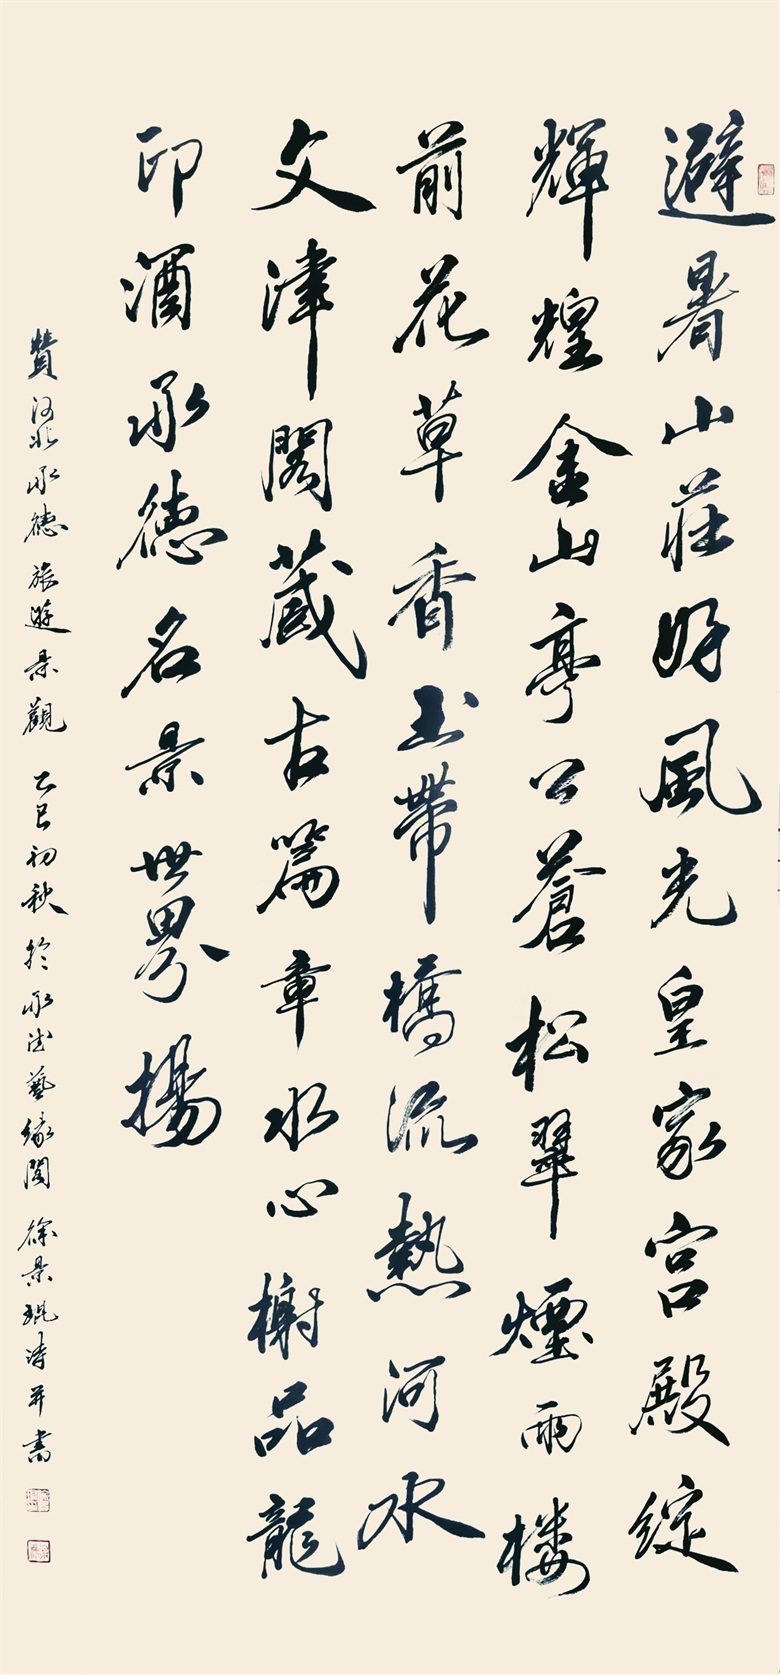 避暑山莊好風光皇家宮殿綻
輝煌金山亭公蒼松翠煙雨楼
前花草香玉帶橋流熱河水
文津閣藏古篇章水心榭品龍
印酒承德名景世界揚
贊河北承德旅遊景觀 乙巳初秋 於承德藝緣閣 徐景琨詩并書